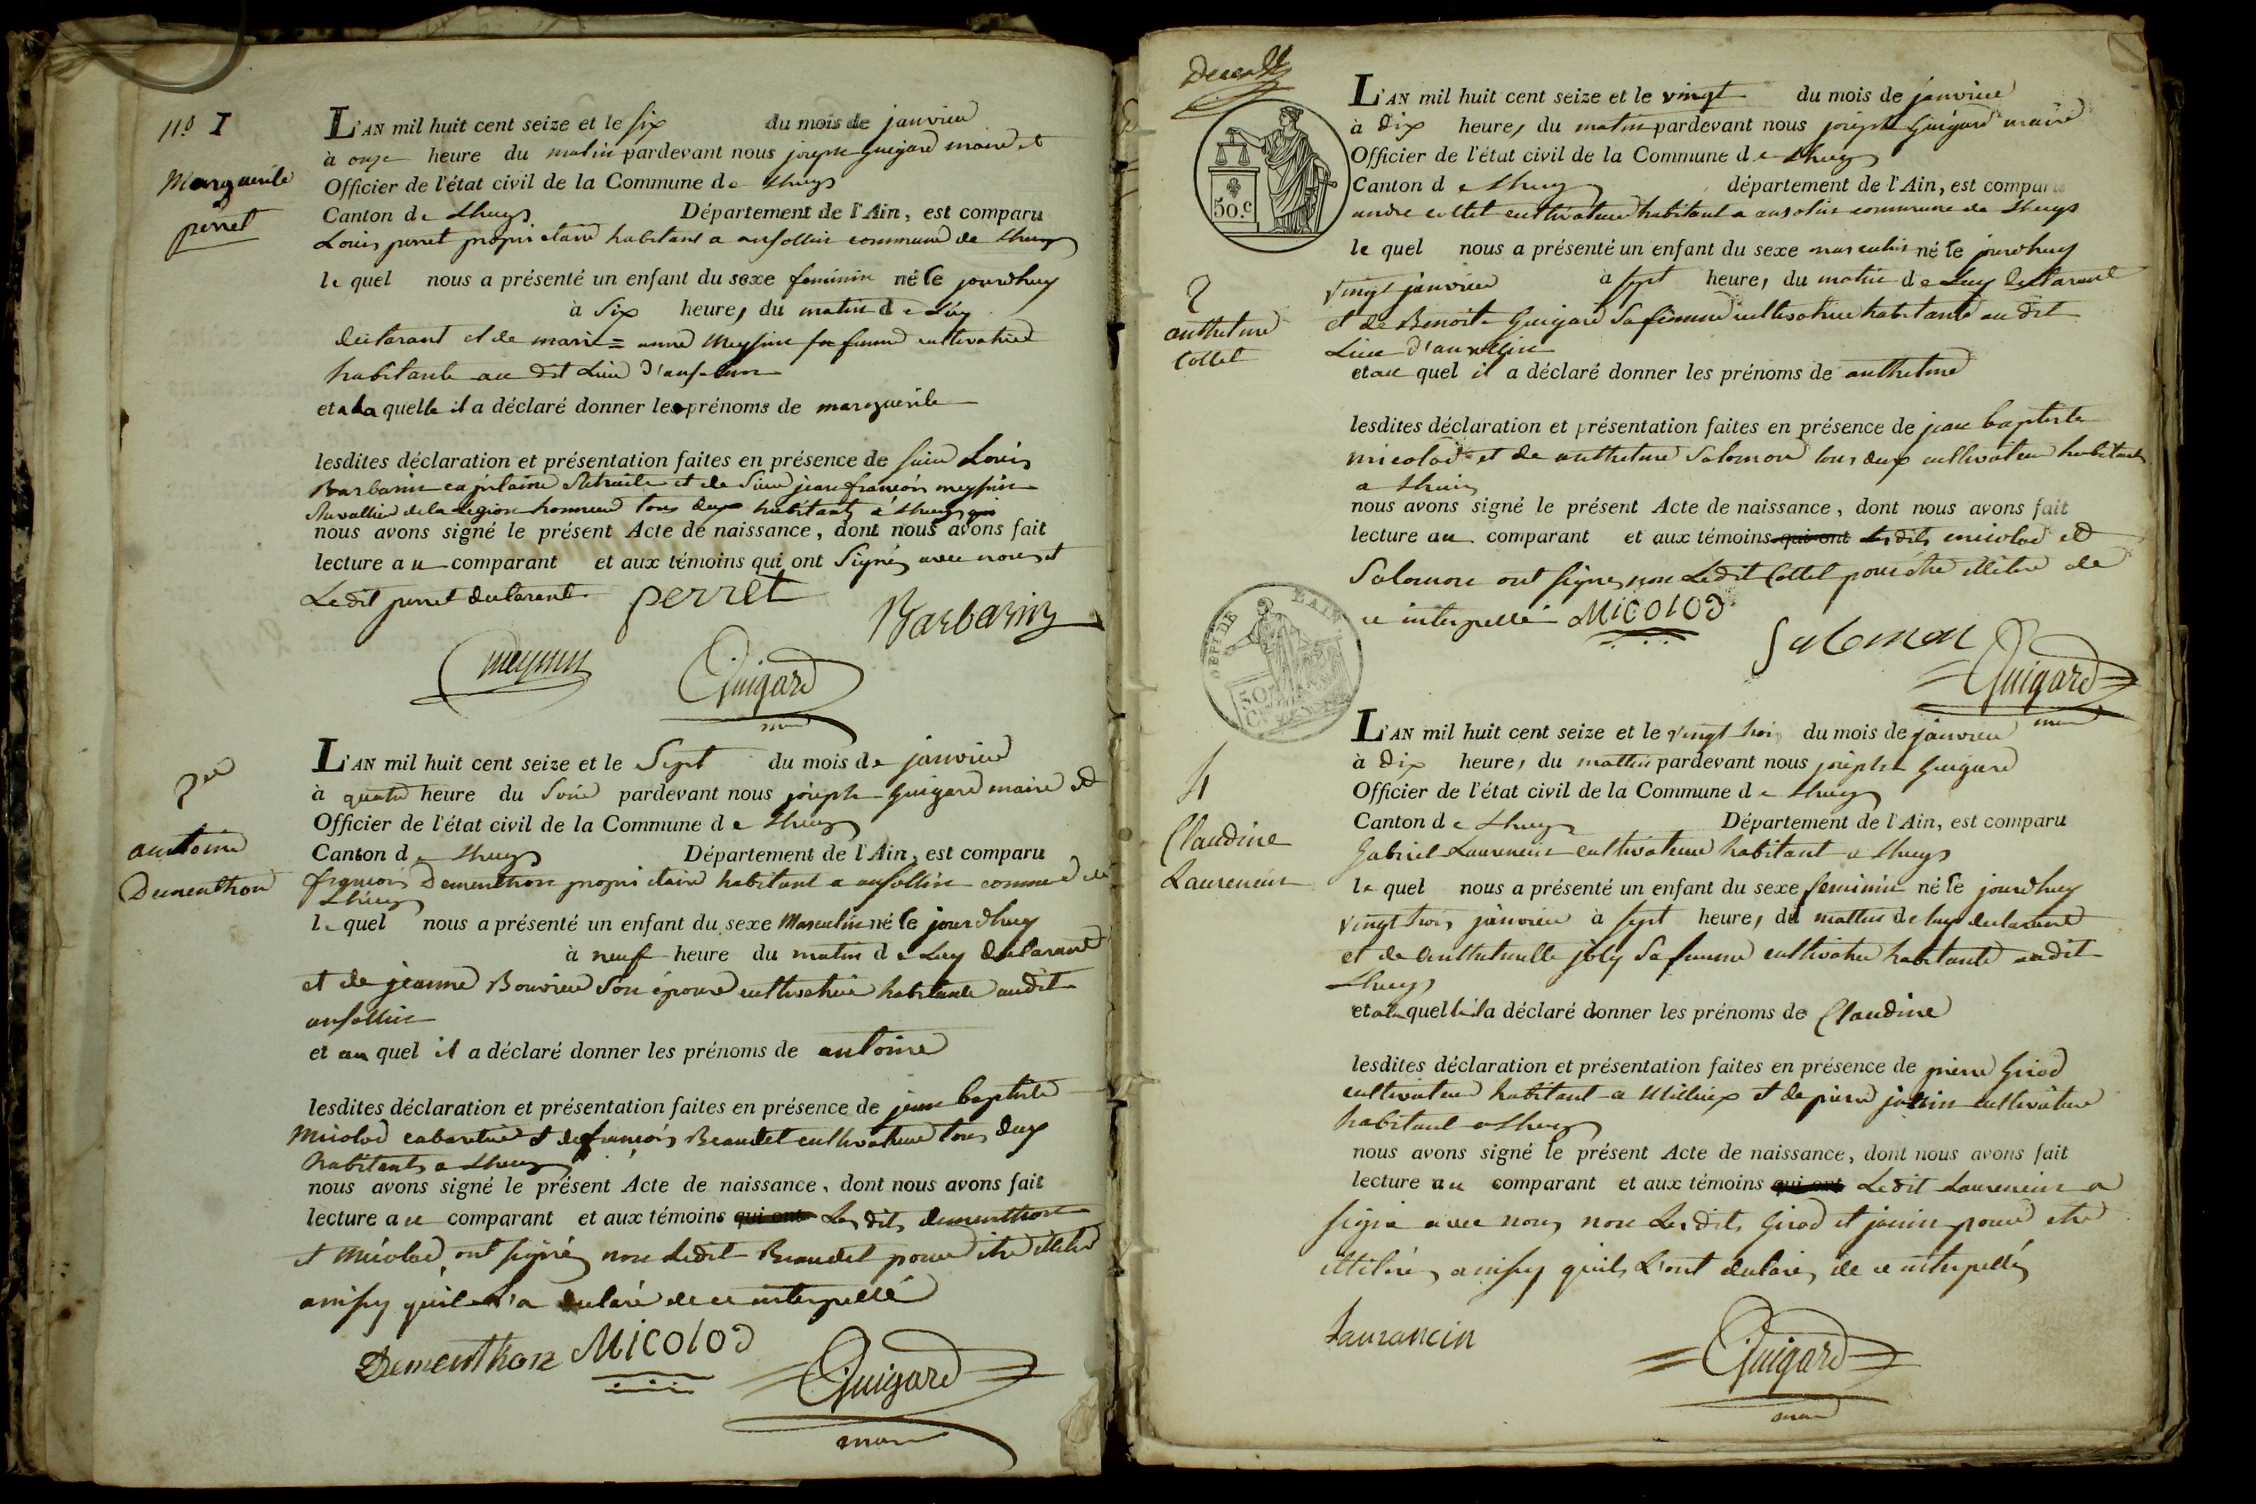 N.o 1
Marguerite
perret
L'AN mil huit cent seize et le six du mois de janvier
à onze heure du matin pardevant nous joseph guigard maire et
Officier de l'état civil de la Commune de Lhuys
Canton de Lhuys Département de l'Ain, est comparu
Louis perret proprietaire habitant a ansollin commune de Lhuys
le quel nous a présenté un enfant du sexe feminin né le jourdhuy
à six heures du matin de Luy
declarant et de marie = anne Meyssin sa femme cultivatrice
habitante au dit Lieu d'ansolin
et a la quelle il a déclaré donner les prénoms de marguerite
lesdites déclaration et présentation faites en présence de sieur Louis
Barbarin capitaine Retraité et de Sieur jean françois meyssin
chevallier de la Legion honneur tous deux habitants a Lhuys qui
nous avons signé le présent Acte de naissance, dont nous avons fait
lecture au comparant et aux témoins qui ont Signés avec nous et
Le dit perret declarant perret
Barbarin
meyssin Guigard
maire
2me
antoine
Dementhon
L'AN mil huit cent seize et le Sept du mois de janvier
à quatre heure du Soire pardevant nous joseph Guigard maire et
Officier de l'état civil de la Commune de Lhuys
Canton de Lhuys Département de l'Ain, est comparu
françois Dementhon proprietaire habitant a ansollin commune de
Lhuys
le quel nous a présenté un enfant du sexe Masculin né le jourdhuy
à neuf heure du matin de Luy declarant
et de jeanne Bouvier Son épouse cultivatrice habitante audit
ansollin
et au quel il a déclaré donner les prénoms de antoine
lesdites déclaration et présentation faites en présence de jean baptiste
Micolod cabaretier et de françois Beaudet cultivateur tous deux
habitants a Lhuys
nous avons signé le présent Acte de naissance, dont nous avons fait
lecture au comparant et aux témoins qui ont Les dits dementhon
et Micolod ont signés non Ledit Beaudet pour être illitéré
ainsy qu'il L'a declaré de ce interpellé
Dementhon MICOLOD
Guigard
maire
50.c
3
anthelme
Collet
L'AN mil huit cent seize et le vingt du mois de janvier
à dix heures du matin pardevant nous joseph Guigard maire
Officier de l'état civil de la Commune de Lhuys
Canton de Lhuys département de l'Ain, est comparu
andré collet cultivateur habitant a ansolin commune de Lhuys
le quel nous a présenté un enfant du sexe masculin né le jourdhuy
vingt janvier à sept heures du matin de Luy declarant
et de Benoite Guigard Sa femme cultivatrice habitante au dit
Lieu d'ansollin
et au quel il a déclaré donner les prénoms de anthelme
lesdites déclaration et présentation faites en présence de jean baptiste
micolod et de anthelme Salomon tous deux cultivateur habitants
a Lhuis
nous avons signé le présent Acte de naissance, dont nous avons fait
lecture au comparant et aux témoins qui ont Les dits micolod et
Salomon ont signes non Ledit Collet pour être illitéré de
ce interpellé MICOLOD
Salomon
Guigard
maire
DEPT DE L'AIN
50
4
Claudine
Laurencin
L'AN mil huit cent seize et le vingt trois du mois de janvier
à dix heures du mattin pardevant nous joseph Guigard
Officier de l'état civil de la Commune de Lhuys
Canton de Lhuys Département de l'Ain, est comparu
Gabriel Laurencin cultivateur habitant a Lhuys
le quel nous a présenté un enfant du sexe feminin né le jourdhuy
vingt trois janvier à sept heures du mattin de luy declarant
et de Anthelmette joly Sa femme cultivatrice habitante audit
Lhuys
et a la quelle il a déclaré donner les prénoms de Claudine
lesdites déclaration et présentation faites en présence de pierre Girod
cultivateur habitant a Millieux et de pierre janin cultivateur
habitant a Lhuys
nous avons signé le présent Acte de naissance, dont nous avons fait
lecture au comparant et aux témoins qui ont Ledit Laurencin a
signé avec nous non Les dits Girod et janin pour etre
illitérés ainsy quils L'ont declarés de ce interpellés
Laurancin
Guigard
maire